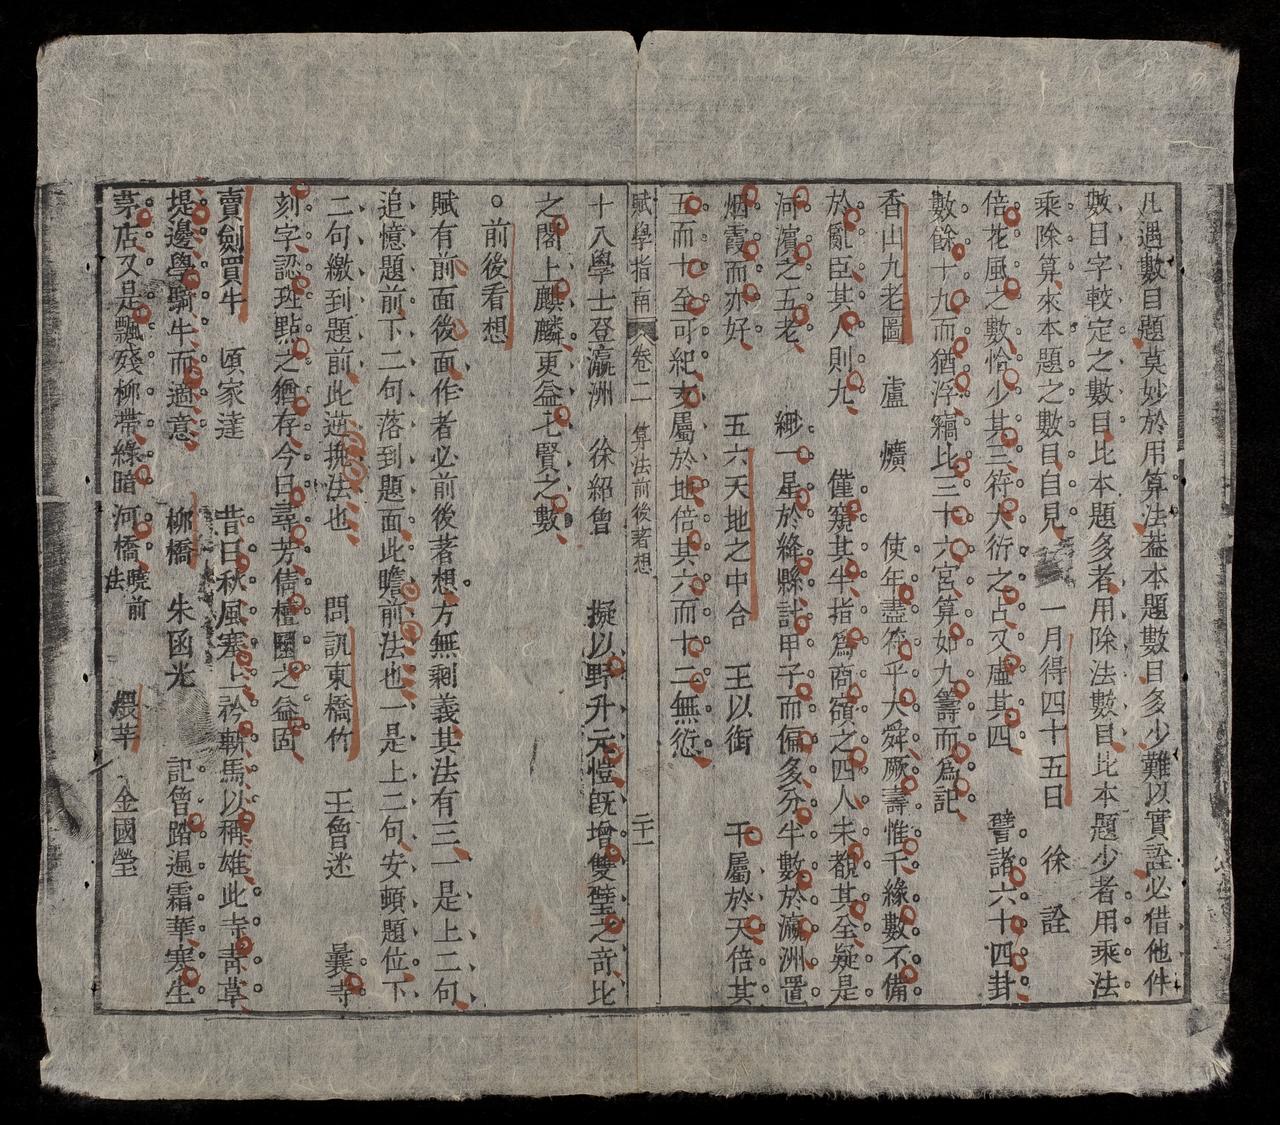 凡遇數目題莫妙於用算法葢本題數目多少難以實詮必借他件
數目字較定之數目比本題多者用除法數目比本題少者用乘法
乘除算來本題之數目自見 一月得四十五日 徐 詮
倍花風之數恰少其三符大衍之占又虛其四 譬諸六十四卦
數餘十九而猶浮竊比三十六宮算如九籌而爲記
香山九老圖 盧 爌 使年盡符乎大舜厥壽惟千緣數不備
於亂臣其人則九 僅窺其半指爲商頌之四人未覩其全疑是
河濱之五老 緲一星於絳縣計甲子而偏多分半數於瀛洲置
烟霞而亦好 五六天地之中合 王以銜 干屬於天倍其
五而十全可紀支屬於地倍其六而十二無愆
賦學指南 卷二 算法前後著想 二十一
十八學士登瀛洲 徐紹曾 擬以野升元愷旣增雙璧之奇比
之閣上麒麟更益七賢之數
○前後看想
賦有前面後面作者必前後著想方無剩義其法有三一是上二句
追憶題前下二句落到題面此瞻前法也一是上二句安頓題位下
二句繳到題前此逆挽法也 問訊東橋竹 王曾迷 曩寺
刻字認斑點之猶存今日尋芳儁檀欒之益固
賣劍買牛 項家達 昔日秋風塞上矜斬馬以稱雄此寺靑草
堤邊學騎牛而適意 柳橋 朱函光 記曾踏遍霜華寒生
茅店又是飄殘柳帶綠暗河橋曉前法 擐莘 金國瑩